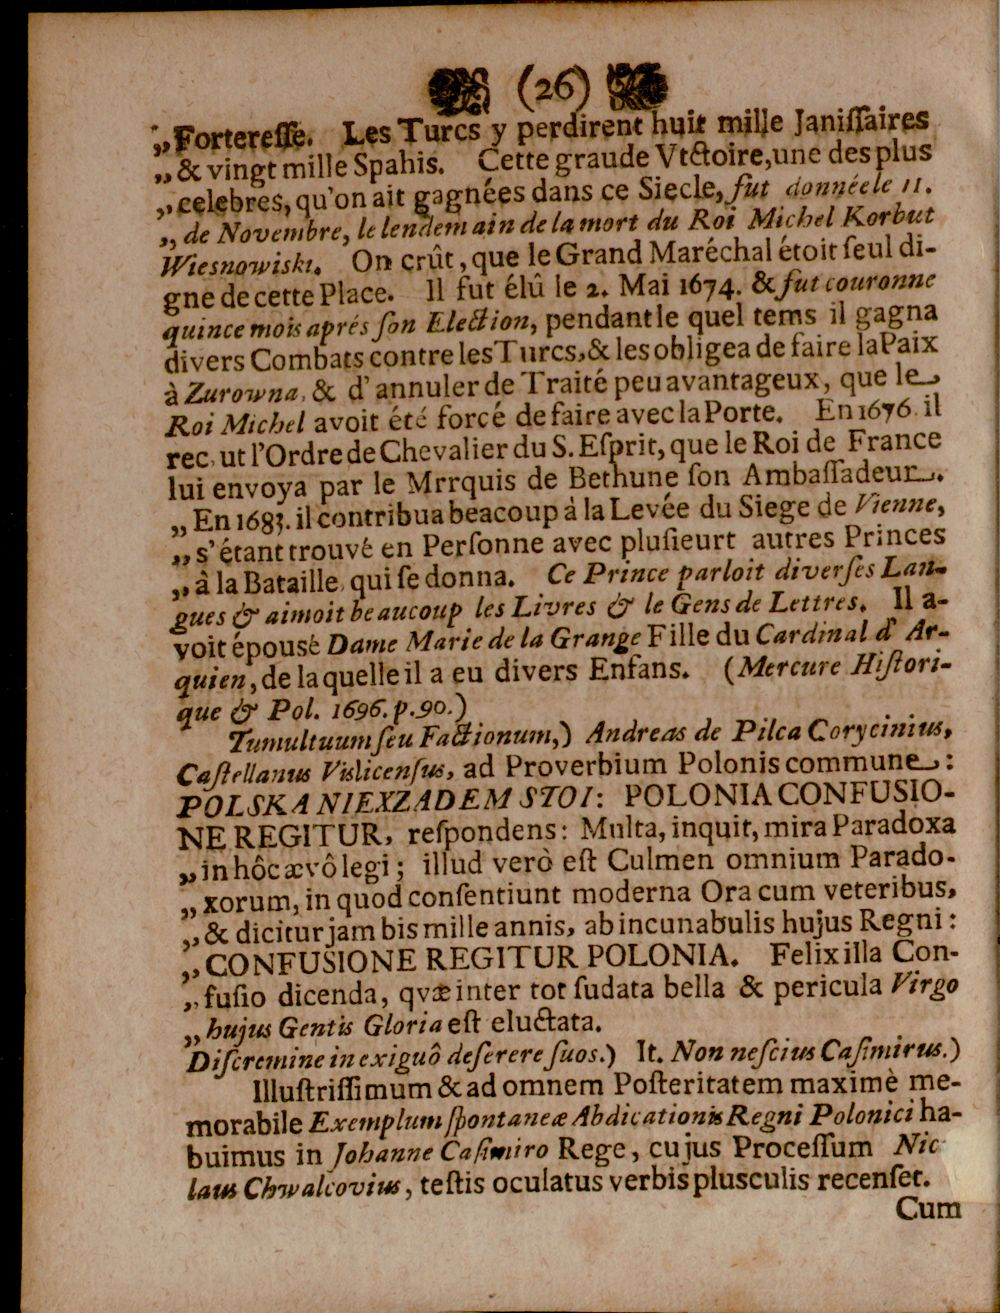 (26)
„Fortereſſe. Les Turcs y perdirent huit mille Janiſſaires
„& vingt mille Spahis. Cette graude Vtctoire,une des plus
„celebres, qu'on ait gagnées dans ce Siecle, fut donnée le 11.
„de Novembre, le lendemain de la mort du Roi Michel Korbut
Wiesnowiski. On crût, que le Grand Maréchal étoit ſeul di-
gne de cette Place. Il fut élû le 2. Mai 1674. & fut couronne
quince mois aprés ſon Election, pendant le quel tems il gagna
divers Combats contre les Turcs, & les obligea de faire la Paix
à Zurowna, & d' annuler de Traité peu avantageux, que le
Roi Michel avoit été forcé de faire avec la Porte. En 1676 il
rec, ut l'Ordre de Chevalier du S. Eſprit, que le Roi de France
lui envoya par le Mrrquis de Bethune ſon Ambaſſadeur.
„En 1683. il contribua beacoup à la Levée du Siege de Vienne,
„s' étant trouvé en Perſonne avec pluſieurt autres Princes
„à la Bataille, qui ſe donna. Ce Prince parloit diverſes Lan-
gues & aimoit beaucoup les Livres & le Gens de Lettres. Il a-
voit épousé Dame Marie de la Grange Fille du Cardinal d' Ar-
quien, de laquelle il a eu divers Enfans. (Mercure Hiſtori-
que & Pol. 1696. p. 90.)
Tumultuum ſeu Factionum,) Andreas de Pilca Corycinius,
Caſtellanus Vislicenſus, ad Proverbium Polonis commune:
POLSKA NIEXZADEM STOI: POLONIA CONFUSIO-
NE REGITUR, reſpondens: Multa, inquit, mira Paradoxa
„in hôc ævô legi; illud verò eſt Culmen omnium Parado-
„xorum, in quod conſentiunt moderna Ora cum veteribus,
„& dicitur jam bis mille annis, ab incunabulis hujus Regni:
„CONFUSIONE REGITUR POLONIA. Felix illa Con-
„fuſio dicenda, qvæ inter tot ſudata bella & pericula Virgo
„hujus Gentis Gloria eſt eluctata.
Diſcremine in exiguô deſerere ſuos.) It. Non neſcius Caſimirus.)
Illuſtriſſimum & ad omnem Poſteritatem maximè me-
morabile Exemplum ſpontaneæ Abdicationis Regni Polonici ha-
buimus in Johanne Caſimiro Rege, cujus Proceſſum Nic
laus Chwalcovius, teſtis oculatus verbis plusculis recenſet.
Cum